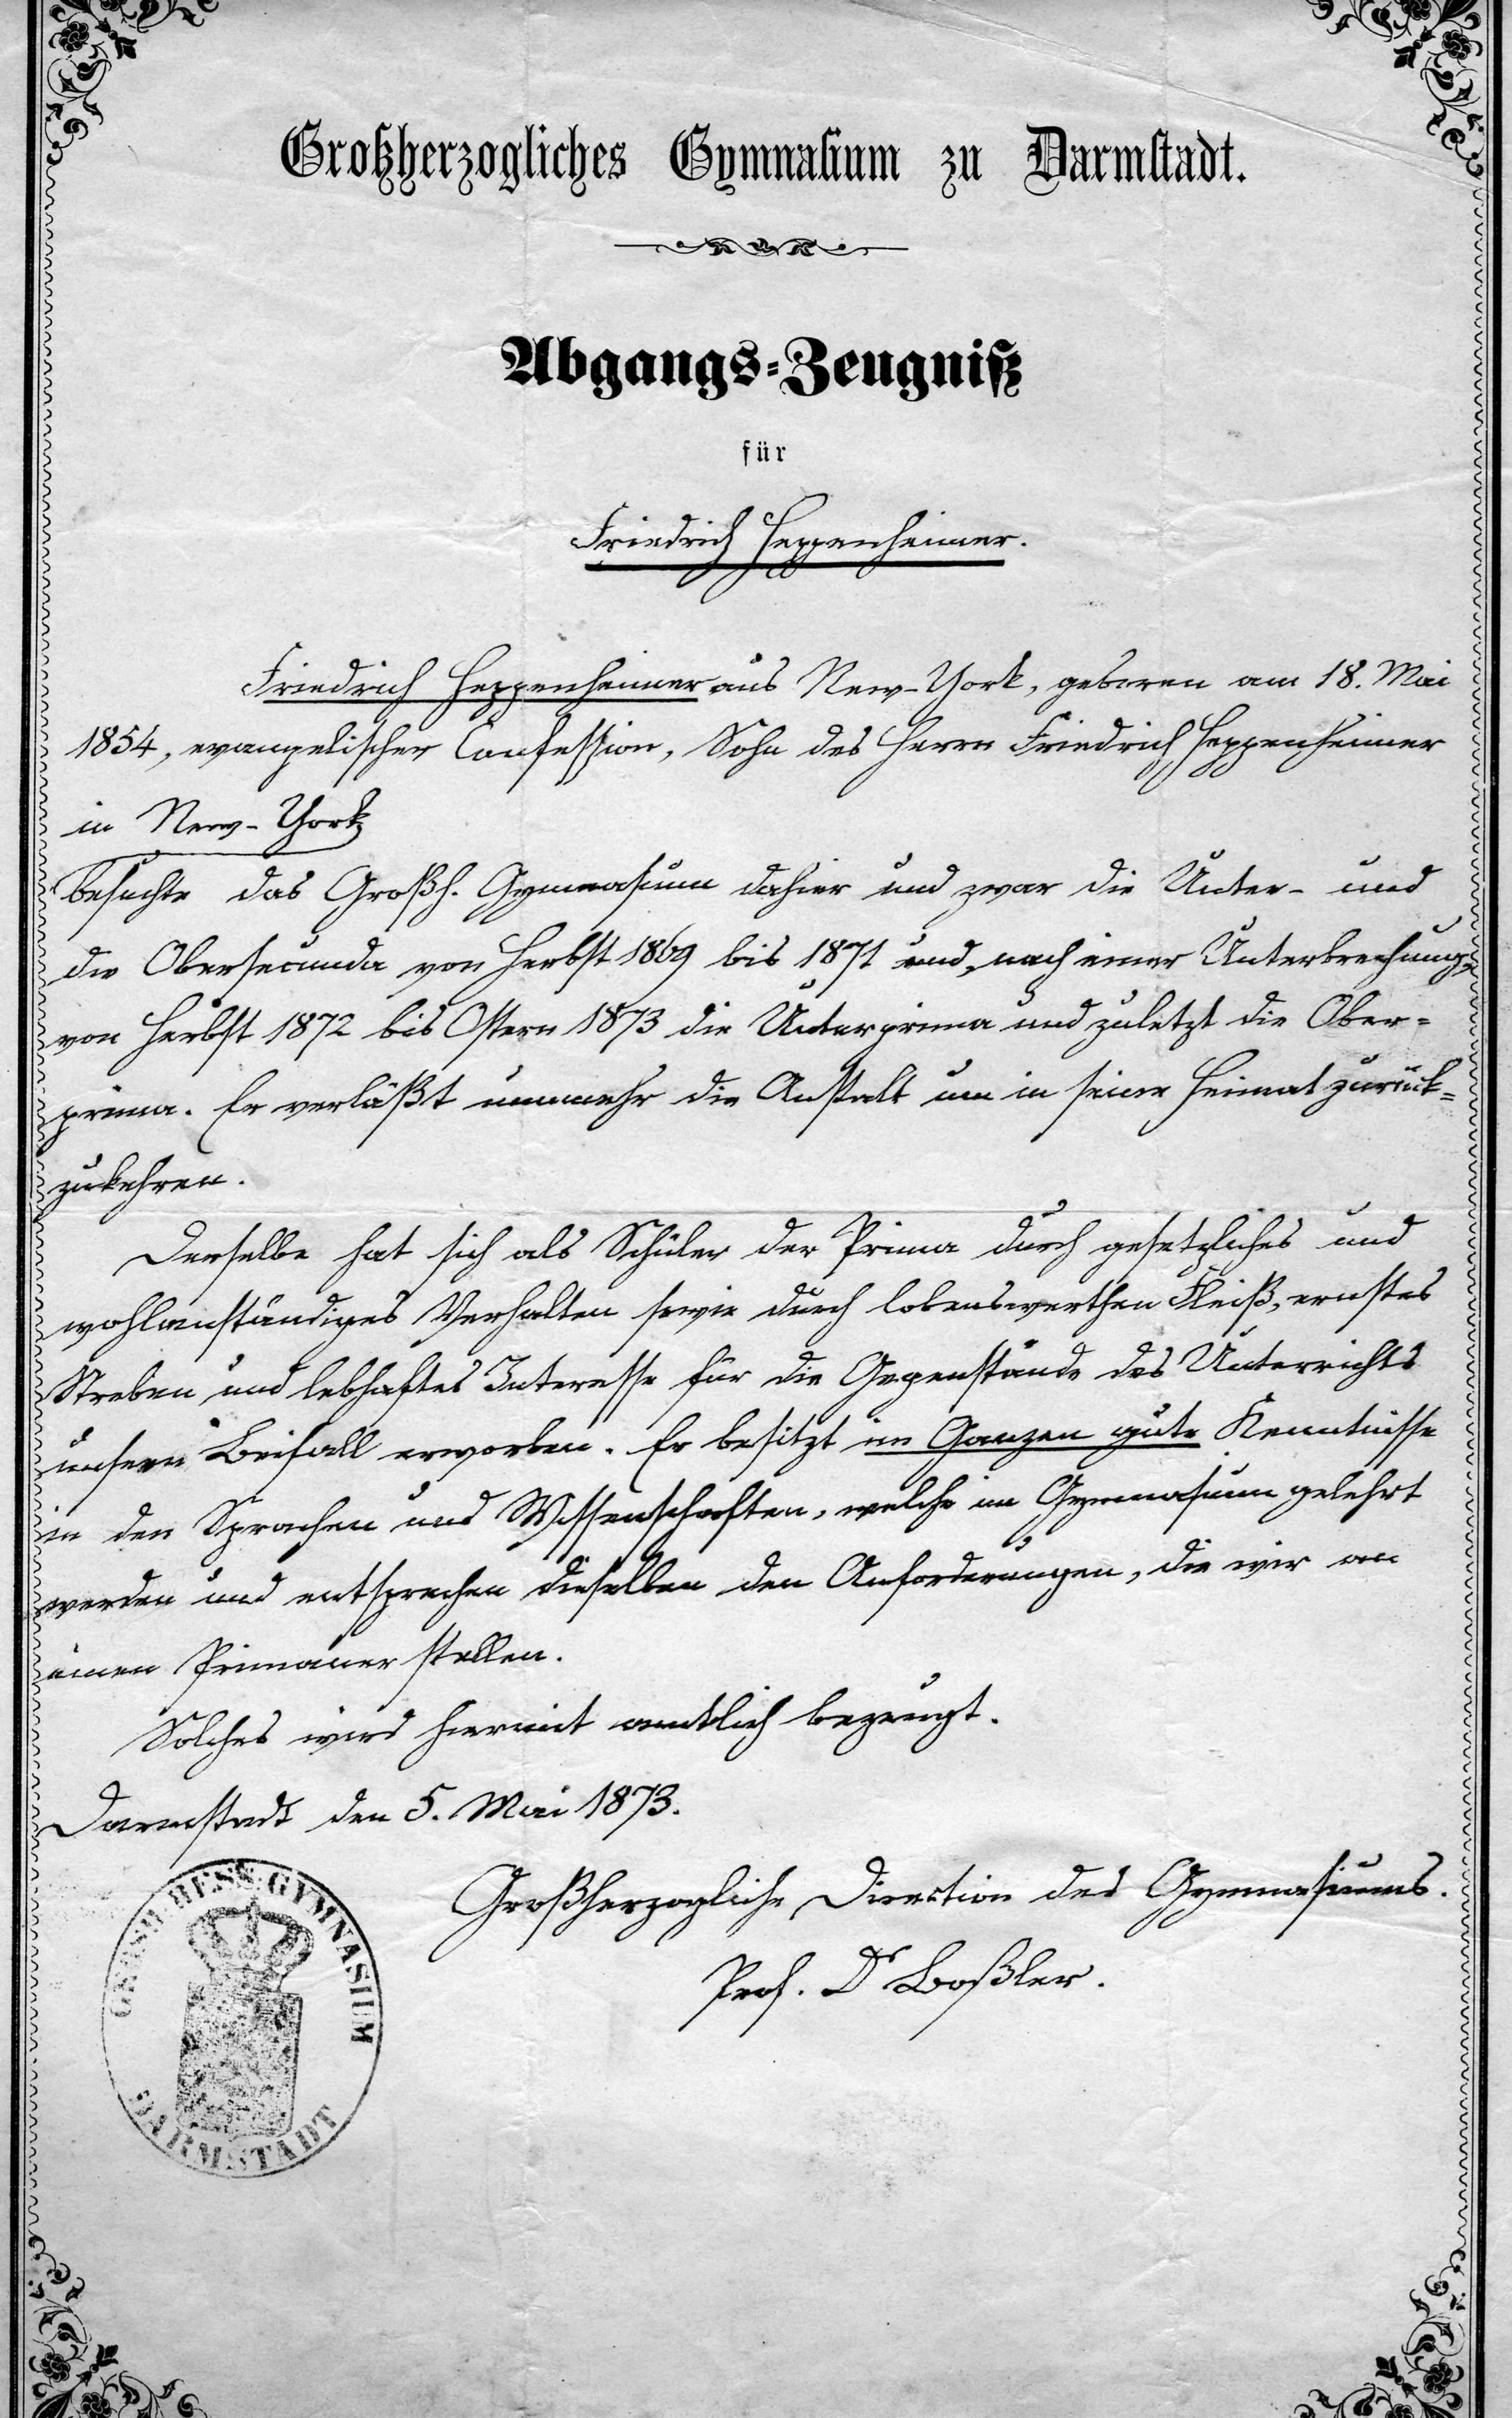 Großherzogliches Gymnasium zu Darmstadt.
Abgangs-Zeugniß
für
Friedrich Heppenheimer.
Friedrich Heppenheimer aus New-York, geboren am 18. Mai
1854, evangelischer Confession, Sohn des Herrn Friedrich Heppenheimer
in New-York
besuchte das Großh. Gymnasium dahier und zwar die Unter- und
die Obersecunda von Herbst 1869 bis 1871 und, nach einer Unterbrechung,
von Herbst 1872 bis Ostern 1873 die Unterprima und zuletzt die Ober-
prima. Er verläßt nunmehr die Anstalt um in seine Heimat zurück-
zukehren.
Derselbe hat sich als Schüler der Prima durch gesetzliches und
wohlanständiges Verhalten sowie durch lobenswerthen Fleiß, ernstes
Streben und lebhaftes Interesse für die Gegenstände des Unterrichts
unsern Beifall erworben. Er besitzt im Ganzen gute Kenntnisse
in den Sprachen und Wissenschaften, welche im Gymnasium gelehrt
werden und entsprechen dieselben den Anforderungen, die wir an
einen Primaner stellen.
Solches wird hiermit amtlich bezeugt.
Darmstadt den 5. Mai 1873.
Großherzogliche Direction des Gymnasiums.
Prof. Dr Boßler.
GRSH. HESS. GYMNASIUM
DARMSTADT